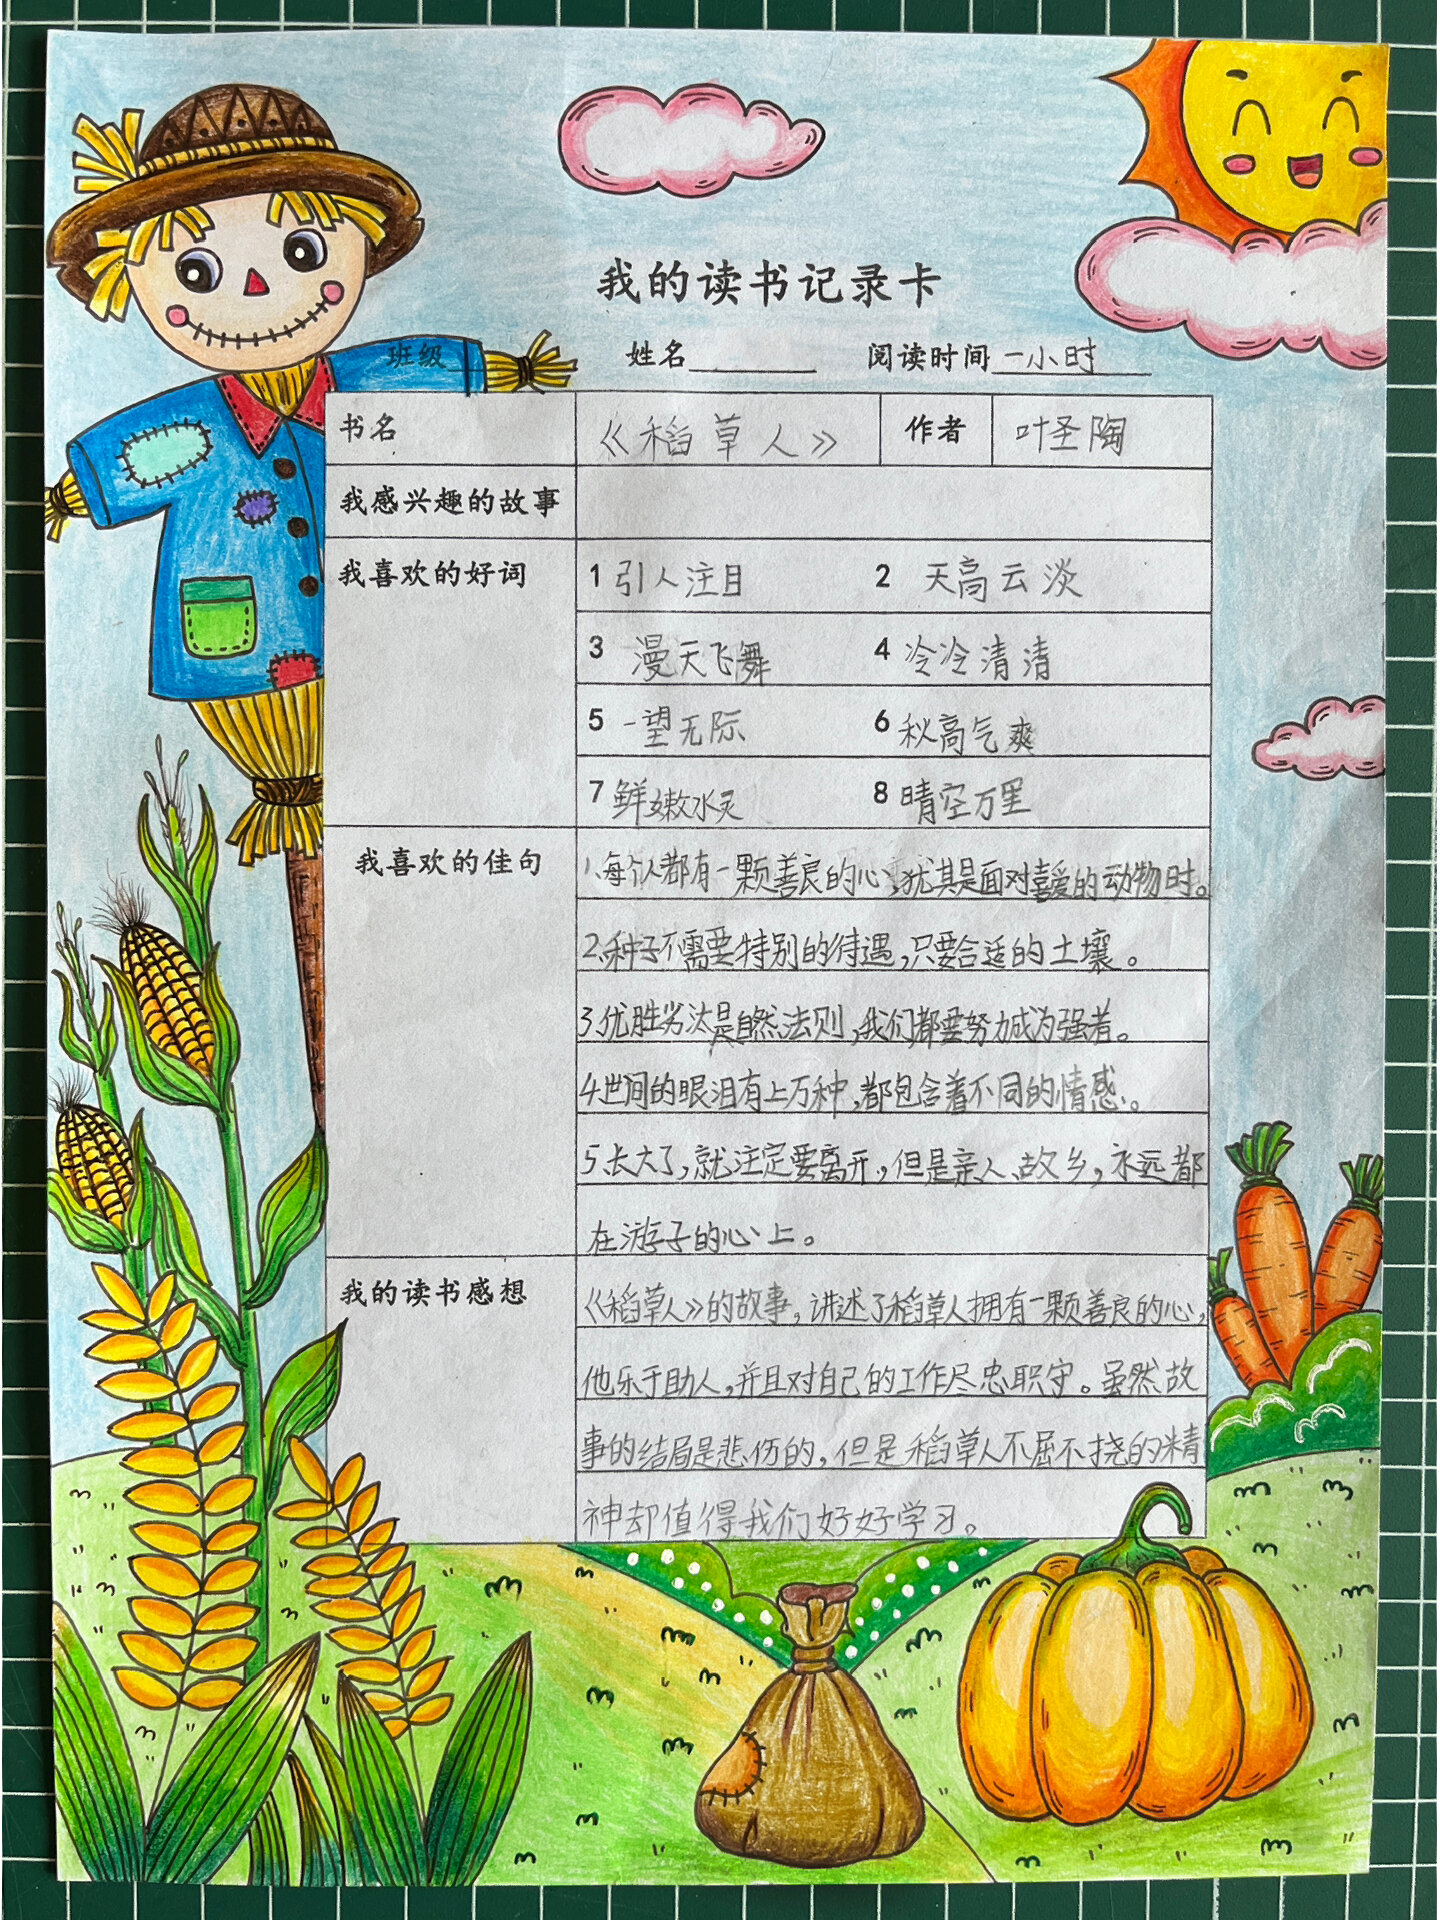 我的读书记录卡
班级 姓名 阅读时间 一小时
书名 《稻草人》 作者 叶圣陶
我感兴趣的故事
我喜欢的好词 1 引人注目 2 天高云淡
3 漫天飞舞 4 冷冷清清
5 一望无际 6 秋高气爽
7 鲜嫩水灵 8 晴空万里
我喜欢的佳句 1、每个人都有一颗善良的心,犹其是面对喜爱的动物时。
2、种子不需要特别的待遇,只要合适的土壤。
3、优胜劣汰是自然法则,我们都要努力成为强者。
4、世间的眼泪有上万种,都包含着不同的情感。
5、长大了,就注定要离开,但是亲人、故乡,永远都
在游子的心上。
我的读书感想 《稻草人》的故事,讲述了稻草人拥有一颗善良的心,
他乐于助人,并且对自己的工作尽忠职守。虽然故
事的结局是悲伤的,但是稻草人不屈不挠的精
神却值得我们好好学习。